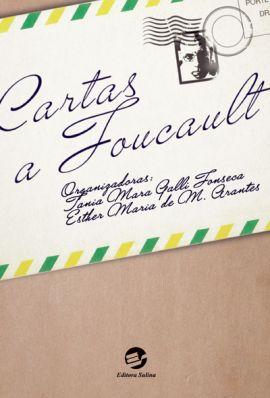 PORTE
DR
Cartas
a Foucault
Organizadoras:
Tania Mara Galli Fonseca
Esther Maria de M. Arantes
Editora Sulina